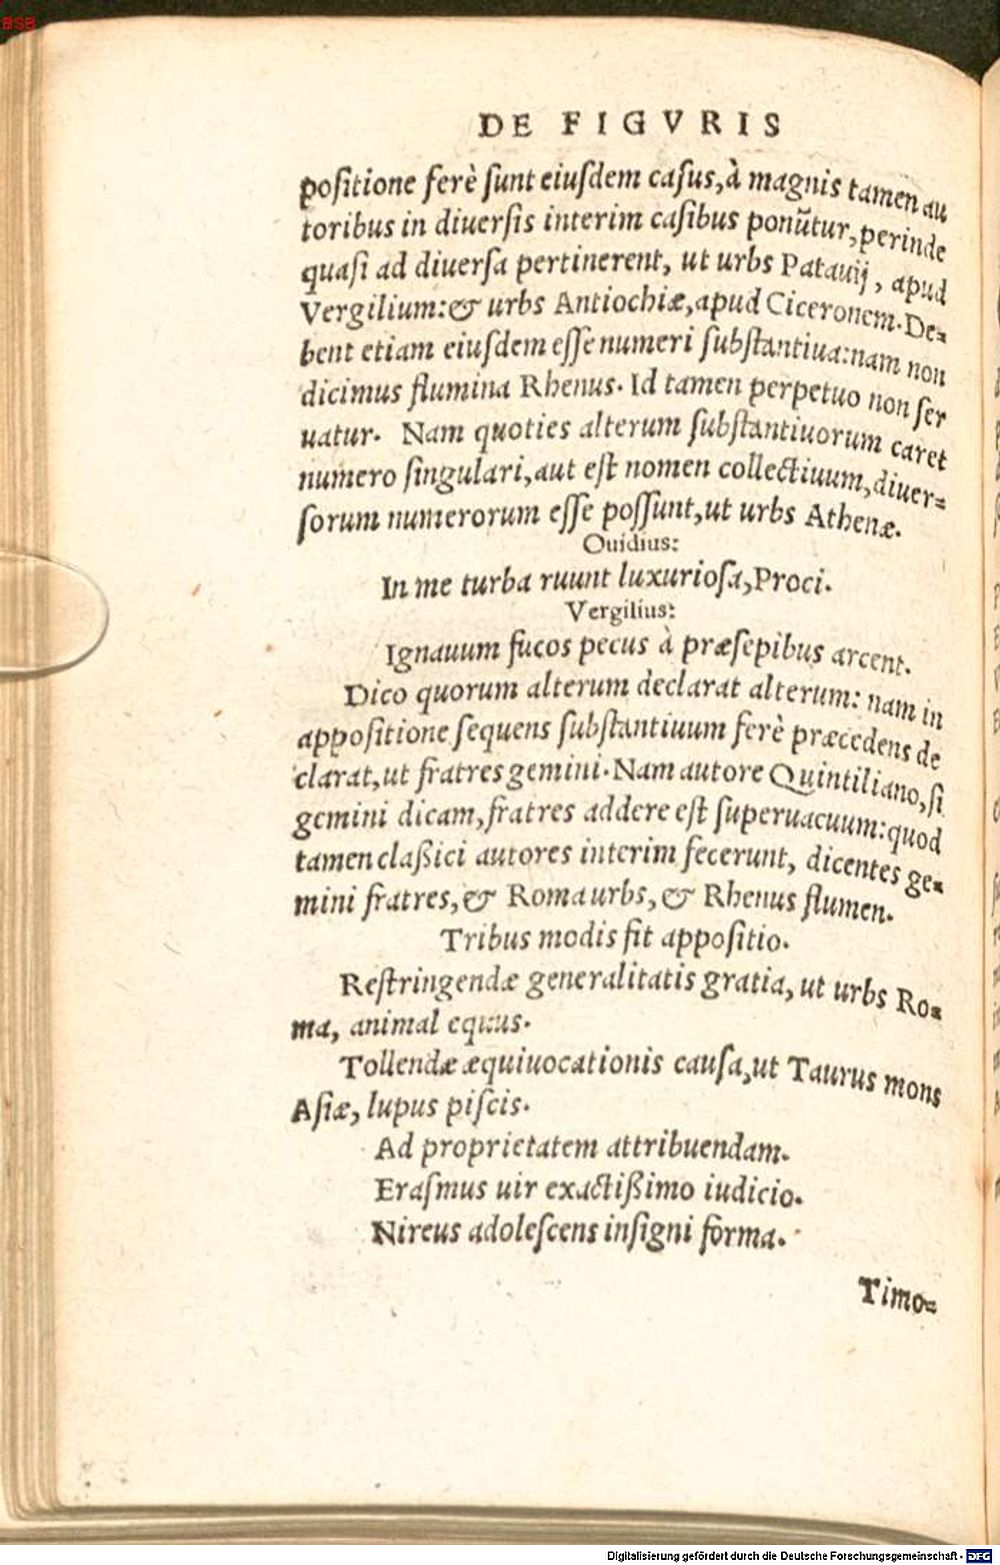 BSB
DE FIGVRIS
positione ferè sunt eiusdem casus, à magnis tamen au
toribus in diuersis interim casibus ponũtur, perinde
quasi ad diuersa pertinerent, ut urbs Patauij, apud
Vergilium: & urbs Antiochiæ, apud Ciceronem. De=
bent etiam eiusdem esse numeri substantiua: nam non
dicimus flumina Rhenus. Id tamen perpetuo non ser
uatur. Nam quoties alterum substantiuorum caret
numero singulari, aut est nomen collectiuum, diuer=
sorum numerorum esse possunt, ut urbs Athenæ.
Ouidius:
In me turba ruunt luxuriosa, Proci.
Vergilius:
Ignauum fucos pecus à præsepibus arcent.
Dico quorum alterum declarat alterum: nam in
appositione sequens substantiuum ferè præcedens de
clarat, ut fratres gemini. Nam autore Quintiliano, si
gemini dicam, fratres addere est superuacuum: quod
tamen claßici autores interim fecerunt, dicentes ge=
mini fratres, & Roma urbs, & Rhenus flumen.
Tribus modis fit appositio.
Restringendæ generalitatis gratia, ut urbs Ro=
ma, animal equus.
Tollendæ æquiuocationis causa, ut Taurus mons
Asiæ, lupus piscis.
Ad proprietatem attribuendam.
Erasmus uir exactißimo iudicio.
Nireus adolescens insigni forma.
Timo=
Digitalisierung gefördert durch die Deutsche Forschungsgemeinschaft - DFG